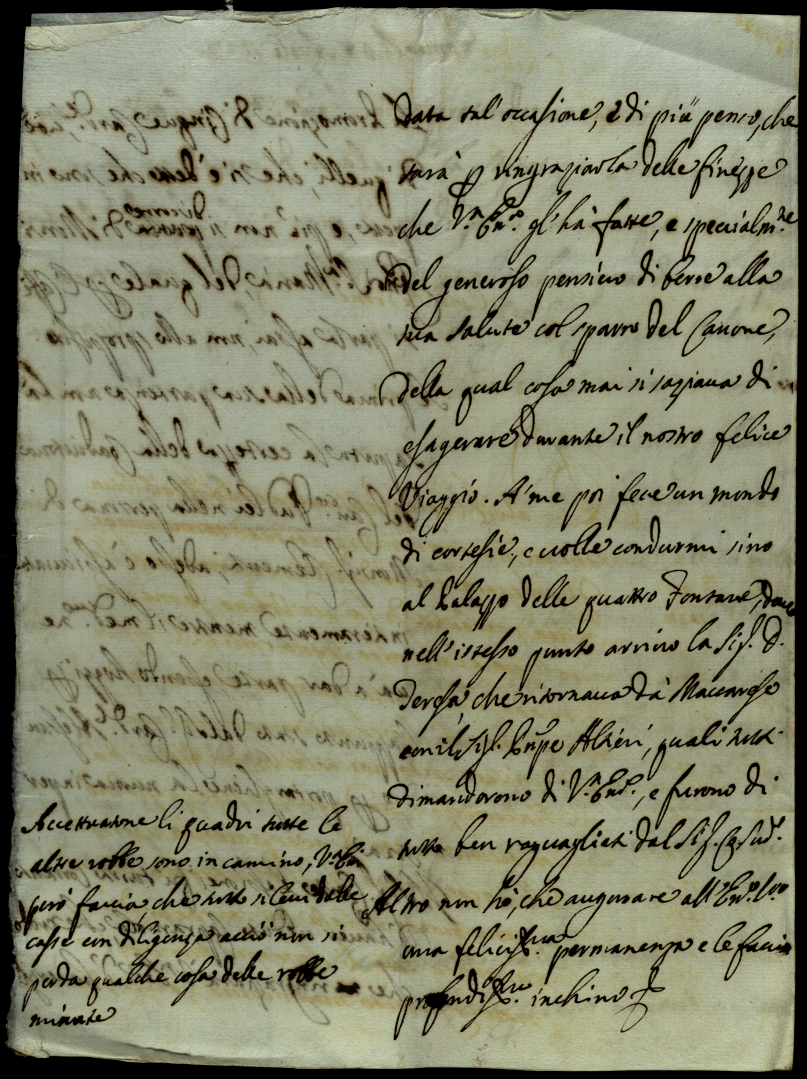 data tal' occasione, e di più penso, che
sarà p ringraziarla delle finezze
che V.ra Em.za gl' hà fatte, e specialm.te
del generoso pensiero di bere alla
sua salute col sparro del Canone,
della qual cosa mai si saziava di
esagerare durante il nostro felice
Viaggio. A' me poi fece un mondo
di cortesie, e volle condurmi sino
al Palazzo delle quattro Fontane, dove
nell' istesso punto arrivò la Sig.ra D.
Teresa che ritornava dà Maccarese
con il Sig.r Pn̄pe Altieri, quali tutti
dimandorono di V.ra Em.za, e furono di
tutto ben raguagliati dal Sig.r
Altro non hò, che augurare all' Em.za V.ra
una felicis.ma permanenza e le faccio
profondis.mo inchino
Accettuatone li quadri tutte le
altre robbe sono in camino, V.ra Em.za
però faccia che tutto si levi dalle
casse con diligenza acciò non si
perda qualche cosa delle robbe
minute